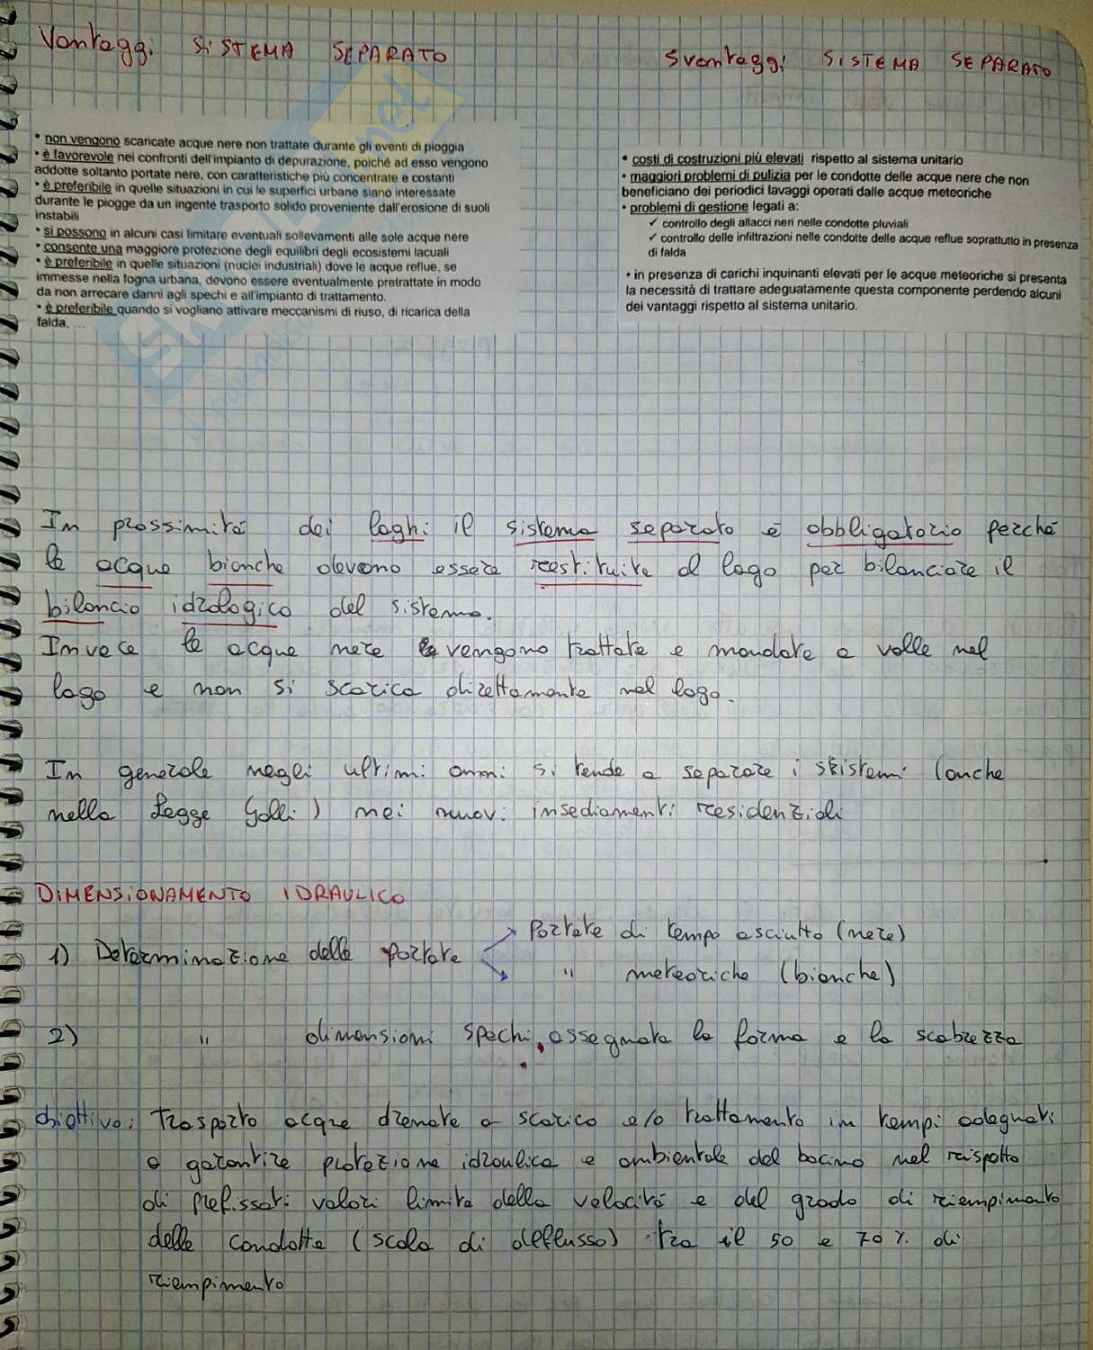 Vantaggi SISTEMA SEPARATO
• non vengono scaricate acque nere non trattate durante gli eventi di pioggia
• è favorevole nei confronti dell'impianto di depurazione, poiché ad esso vengono
addotte soltanto portate nere, con caratteristiche più concentrate e costanti
• è preferibile in quelle situazioni in cui le superfici urbane siano interessate
durante le piogge da un ingente trasporto solido proveniente dall'erosione di suoli
instabili
• si possono in alcuni casi limitare eventuali sollevamenti alle sole acque nere
• consente una maggiore protezione degli equilibri degli ecosistemi lacuali
• è preferibile in quelle situazioni (nuclei industriali) dove le acque reflue, se
immesse nella fogna urbana, devono essere eventualmente pretrattate in modo
da non arrecare danni agli spechi e all'impianto di trattamento.
• è preferibile quando si vogliano attivare meccanismi di riuso, di ricarica della
falda, ...
Svantaggi SISTEMA SEPARATO
• costi di costruzioni più elevati rispetto al sistema unitario
• maggiori problemi di pulizia per le condotte delle acque nere che non
beneficiano dei periodici lavaggi operati dalle acque meteoriche
• problemi di gestione legati a:
✓ controllo degli allacci neri nelle condotte pluviali
✓ controllo delle infiltrazioni nelle condotte delle acque reflue soprattutto in presenza
di falda
• in presenza di carichi inquinanti elevati per le acque meteoriche si presenta
la necessità di trattare adeguatamente questa componente perdendo alcuni
dei vantaggi rispetto al sistema unitario.
In prossimità dei laghi il sistema separato è obbligatorio perché
le acque bianche devono essere restituite al lago per bilanciare il
bilancio idrologico del sistema.
Invece le acque nere vengono trattate e mandate a valle nel
lago e non si scarica direttamente nel lago.
In generale negli ultimi anni si tende a separare i sistemi (anche
nella Legge Galli) nei nuovi insediamenti residenziali
DIMENSIONAMENTO IDRAULICO
1) Determinazione delle portate Portate di tempo asciutto (nere)
" meteoriche (bianche)
2) " dimensioni spechi, assegnata la forma e la scabrezza
Obiettivo: trasporto acque drenate a scarico e/o trattamento in tempi adeguati
a garantire protezione idraulica e ambientale del bacino nel rispetto
di prefissati valori limite della velocità e del grado di riempimento
delle condotte (scala di deflusso) tra il 50 e 70% di
riempimento